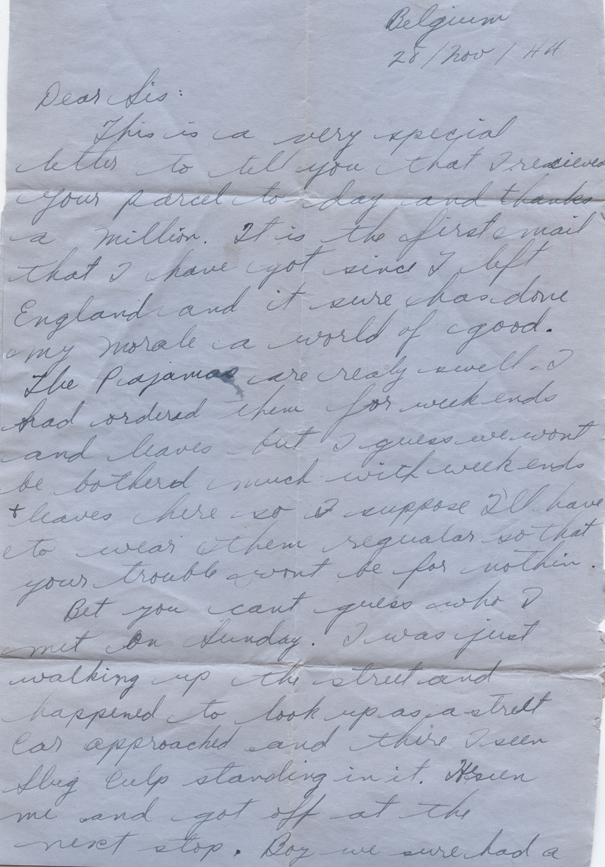 Belgium
28/Nov/44
Dear Sis:
This is a very special
letter to tell you that I recieved
your parcel to day and thanks
a million. It is the first mail
that I have got since I left
England and it sure has done
my morale a world of good.
The Pajamas are realy swell. I
had ordered them for week ends
and leaves but I guess we wont
be botherd much with week ends
+ leaves here so I suppose I'll have
to wear them regular so that
your trouble wont be for nothin.
Bet you cant guess who I
met on Sunday. I was just
walking up the street and
happened to look up as a street
car approached and there I seen
Slug Culp standing in it. He seen
me and got off at the
next stop. Boy we sure had a